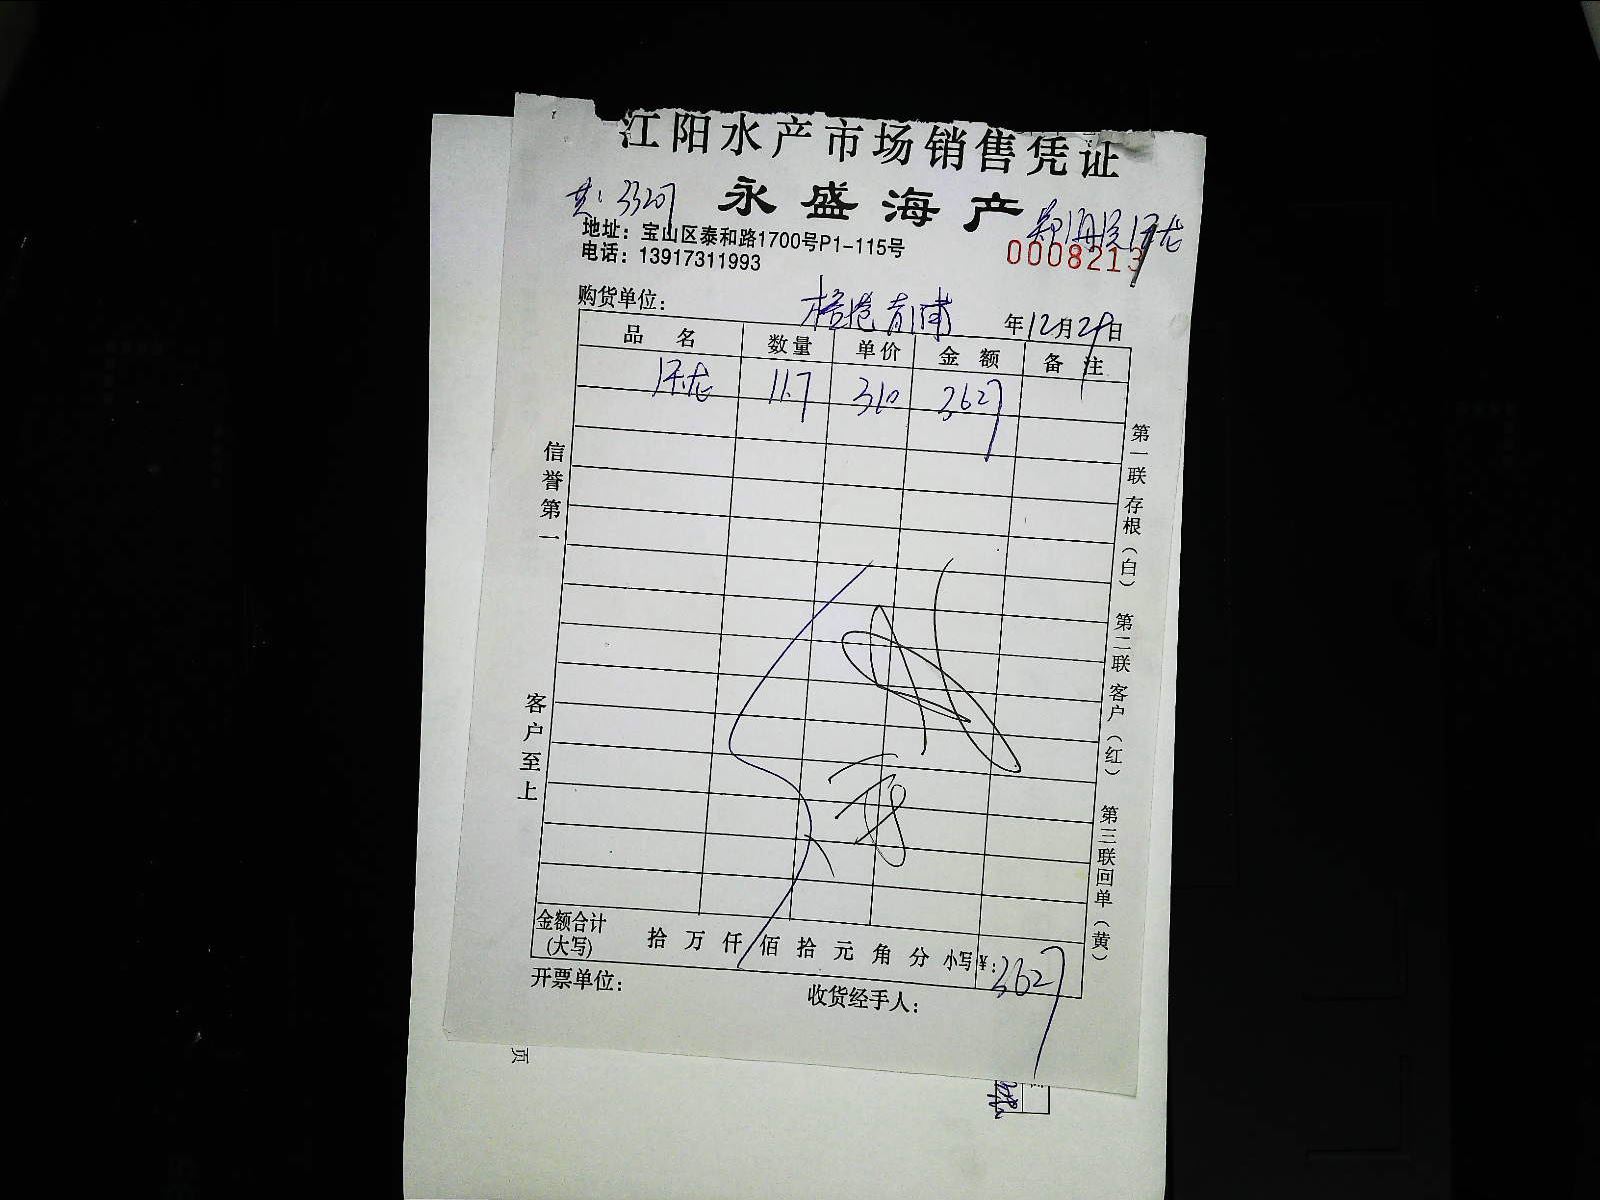 江阳水产市场销售凭证
共：3320
永盛海产
地址：宝山区泰和路1700号P1-115号
电话：13917311993
0008213
购货单位：
青浦
年12月29日
品名 数量 单价 金额 备注
11.7 310 3627
信誉第一
客户至上
第一联存根（白）
第二联客户（红）
第三联回单（黄）
金额合计（大写） 拾 万 仟 佰 拾 元 角 分 小写￥：3627
开票单位：
收货经手人：
页